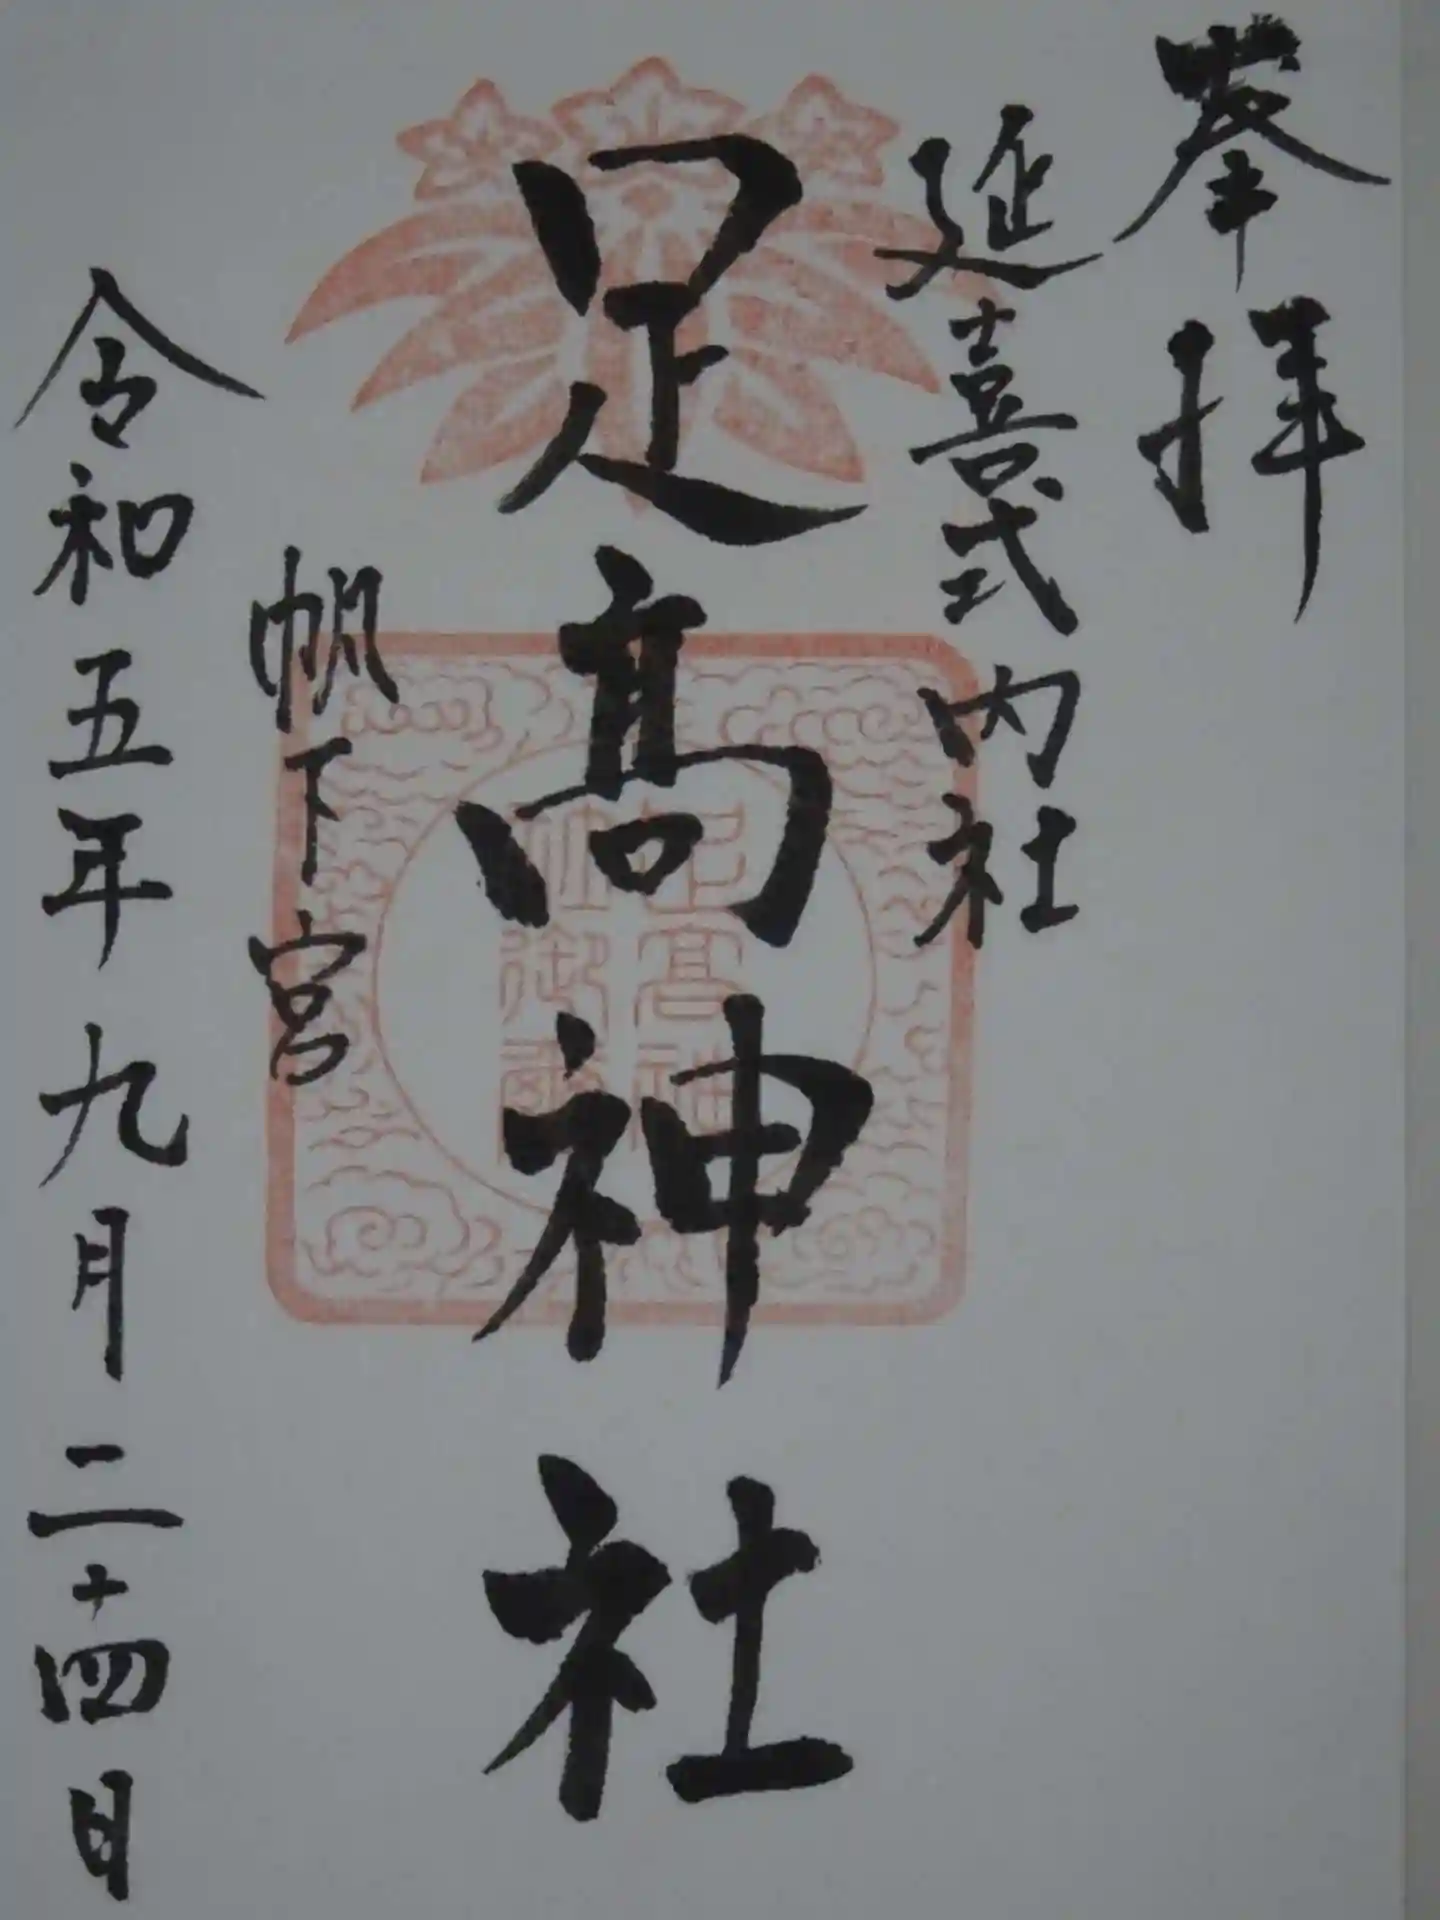 奉拝
延喜式内社
足高神社
帆下宮
令和五年九月二十四日